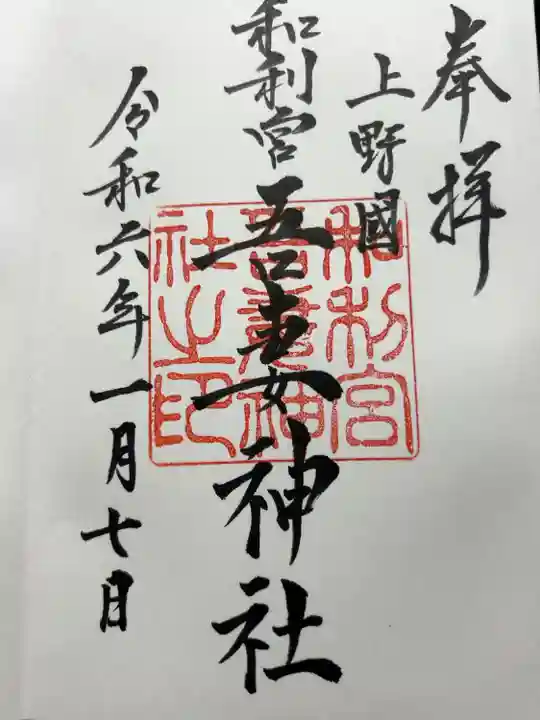 奉拝
上野國
和利宮
吾妻神社
令和六年一月七日
和利宮
吾妻神
社之印